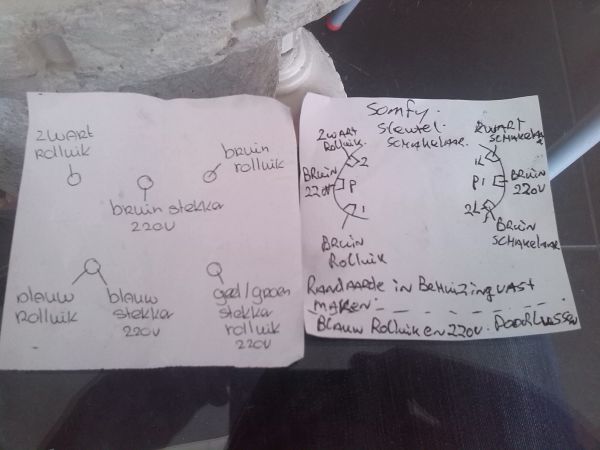 ZWART
Rolluik
bruin
rolluik
bruin stekka
220V
blauw
Rolluik
blauw
stekka
220V
geel/groen
stekka
rolluik
220V
Somfy.
Sleutel.
SCHAKELAAR.
ZWART
Rolluik
2
BRUIN
220V
P
1
BRUIN
Rolluik
ZWART
SCHAKELAAR
1L
P1
BRUIN
220V
2L
BRUIN
SCHAKELAAR
RANDAARDE IN BEHUIZING VAST
MAKEN.
BLAUW ROLLUIK EN 220V. DOORLUSSEN